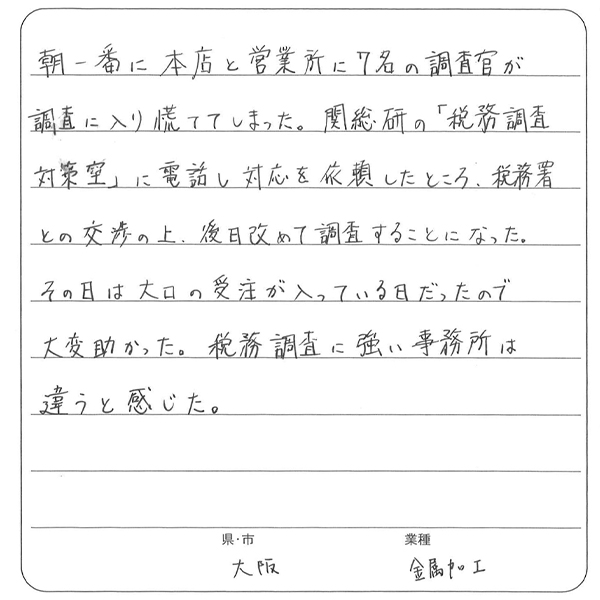 朝一番に本店と営業所に7名の調査官が
調査に入り慌ててしまった。関総研の「税務調査
対策室」に電話し対応を依頼したところ、税務署
との交渉の上、後日改めて調査することになった。
その日は大口の受注が入っている日だったので
大変助かった。税務調査に強い事務所は
違うと感じた。
県・市 業種
大阪 金属加工